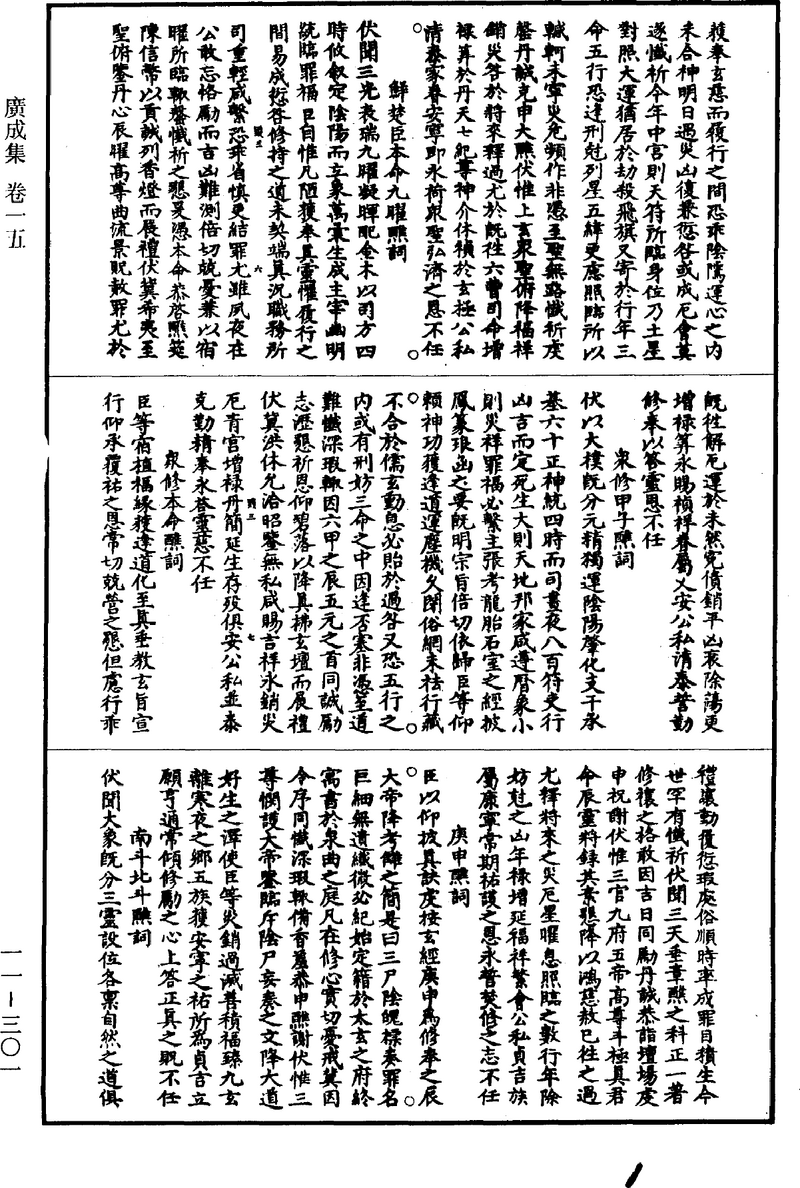 廣成集 卷一五
一一-三〇一
穫奉玄慈而履行之間恐乖陰騭運心之內
未合神明日過災凶復兼愆咎或成厄會莫
遂懺祈今年中宮則天符所臨身位乃土星
對照大運猶居於劫殺飛旗又寄於行年三
命五行恐逢刑尅列星五緯更應照臨所以
轗軻未寧災危頻作非憑至聖無路懺祈虔
罄丹誠克申大醮伏惟上玄眾聖俯降福祥
銷災咎於將來釋過尤於既往六曹司命增
祿算於丹天七紀尊神介休禎於玄極公私
清泰家眷安寧即永荷眾聖弘濟之恩不任
鮮楚臣本命九曜醮詞
伏聞三光表瑞九曜凝暉配金木以司方四
時攸敘定陰陽而立象萬彙生成主宰幽明
統臨罪福臣自惟凡陋獲奉真靈懼履行之
間易成愆咎修持之道未契端真況職務所
司重輕咸繫恐乖省慎更結罪尤雖夙夜在
公敢忘恪勵而吉凶難測倍切兢憂兼以宿
曜所臨輒罄懺祈之懇爰憑本命恭啓醮筵
陳信幣以貢誠列香燈而展禮伏冀希夷至
聖俯鑒丹心辰曜高尊曲流景貺赦罪尤於
既往解厄運於未然冤債銷平凶衰除蕩更
增祿算永賜禎祥眷屬乂安公私清泰誓勤
修奉以答靈恩不任
眾修甲子醮詞
伏以大樸既分元精獨運陰陽肇化支干承
基六十正神統四時而司晝夜八百符吏行
凶吉而定死生大則天地邦家咸遵曆象小
則災祥罪福必繫主張考龍胎石室之經披
鳳篆琅函之要既明宗旨倍切依歸臣等仰
賴神功獲逢道運塵機久閉俗網未袪行藏
不合於儒玄動息必貽於過咎又恐五行之
內或有刑妨三命之中因逢否塞非憑篁道
難懺深瑕輒因六甲之辰五元之首同誠勵
志瀝懇祈恩仰碧落以降真拂玄壇而展禮
伏冀洪休允洽昭鑒無私咸賜吉祥永銷災
厄青宮增祿丹簡延生存歿俱安公私並泰
克勤精奉永荅靈慈不任
眾修本命醮詞
臣等宿植福緣獲逢道化至真垂教玄旨宣
行仰承覆祐之恩常切兢營之懇但慮行乖
禮讓動履愆瑕處俗順時率成罪目積生今
世罕有懺祈伏聞三天垂章醮之科正一著
修禳之格敢因吉日同勵丹誠恭詣壇場虔
申祝謝伏惟三官九府五帝高尊斗極真君
命辰靈將錄其素懇降以鴻慈赦已往之過
尤釋將來之災厄星曜息照臨之數行年除
妨尅之凶年祿增延福祥繁會公私貞吉族
屬康寧常期祐護之恩永誓焚修之志不任
庚申醮詞
臣以仰披真訣虔按玄經庚申為修奉之辰
大帝降考讎之簡是曰三尸陰魄祿奏罪名
巨細無遺纖微必紀始定籍於太玄之府終
寓書於泉曲之庭凡在修心實切憂戒冀因
令序同懺深瑕輒備香羞恭申醮謝伏惟三
尊憫護大帝鑒臨斥陰尸妄奏之文降大道
好生之澤使臣等災銷過滅善積福臻九玄
離寒夜之鄉五族獲安寧之祐所為貞吉立
願亨通常傾修勵之心上答正真之貺不任
南斗北斗醮詞
伏聞大象既分三靈設位各稟自然之道俱